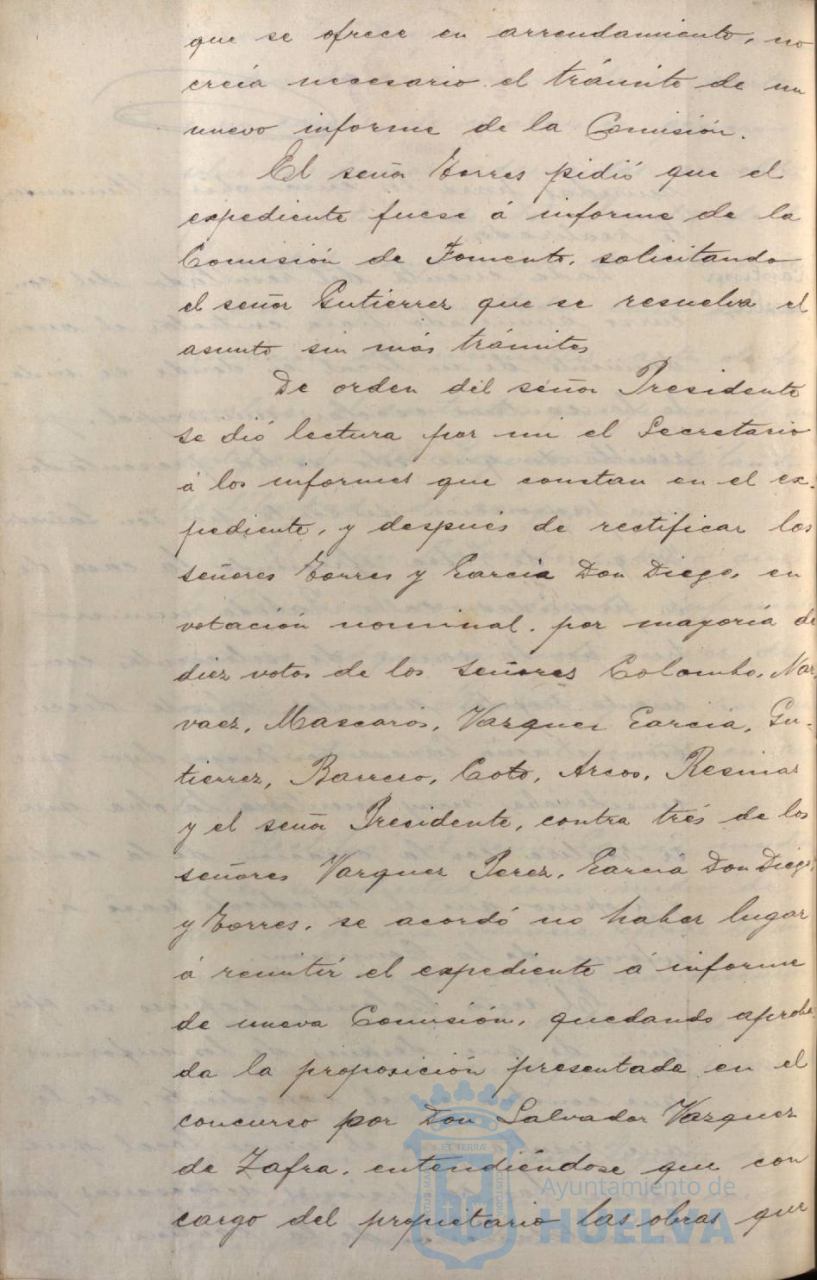 que se ofrece en arrendamiento, no
creia necesario el trámite de un
nuevo informe de la Comisión.
El señor Torres pidió que el
expediente fuese á informe de la
Comisión de Fomento, solicitando
el señor Gutierrez que se resuelva el
asunto sin más trámites
De orden del señor Presidente
se dió lectura por mi el Secretario
á los informes que constan en el ex-
pediente, y después de rectificar los
señores Torres y Garcia Don Diego, en
votación nominal, por mayoría de
diez votos de los señores Colombo, Nar-
vaez, Mascarós, Vazquez Garcia, Gu-
tierrez, Barrero, Coto, Arcos, Resinas
y el señor Presidente, contra trés de los
señores Vazquez Perez, Garcia Don Diego
y Torres, se acordó no haber lugar
á remitir el expediente á informe
de nueva Comisión, quedando aproba-
da la proposición presentada en el
concurso por Don Salvador Vazquez
de Zafra, entendiéndose que con
cargo del propietario las obras que
Ayuntamiento de
HUELVA